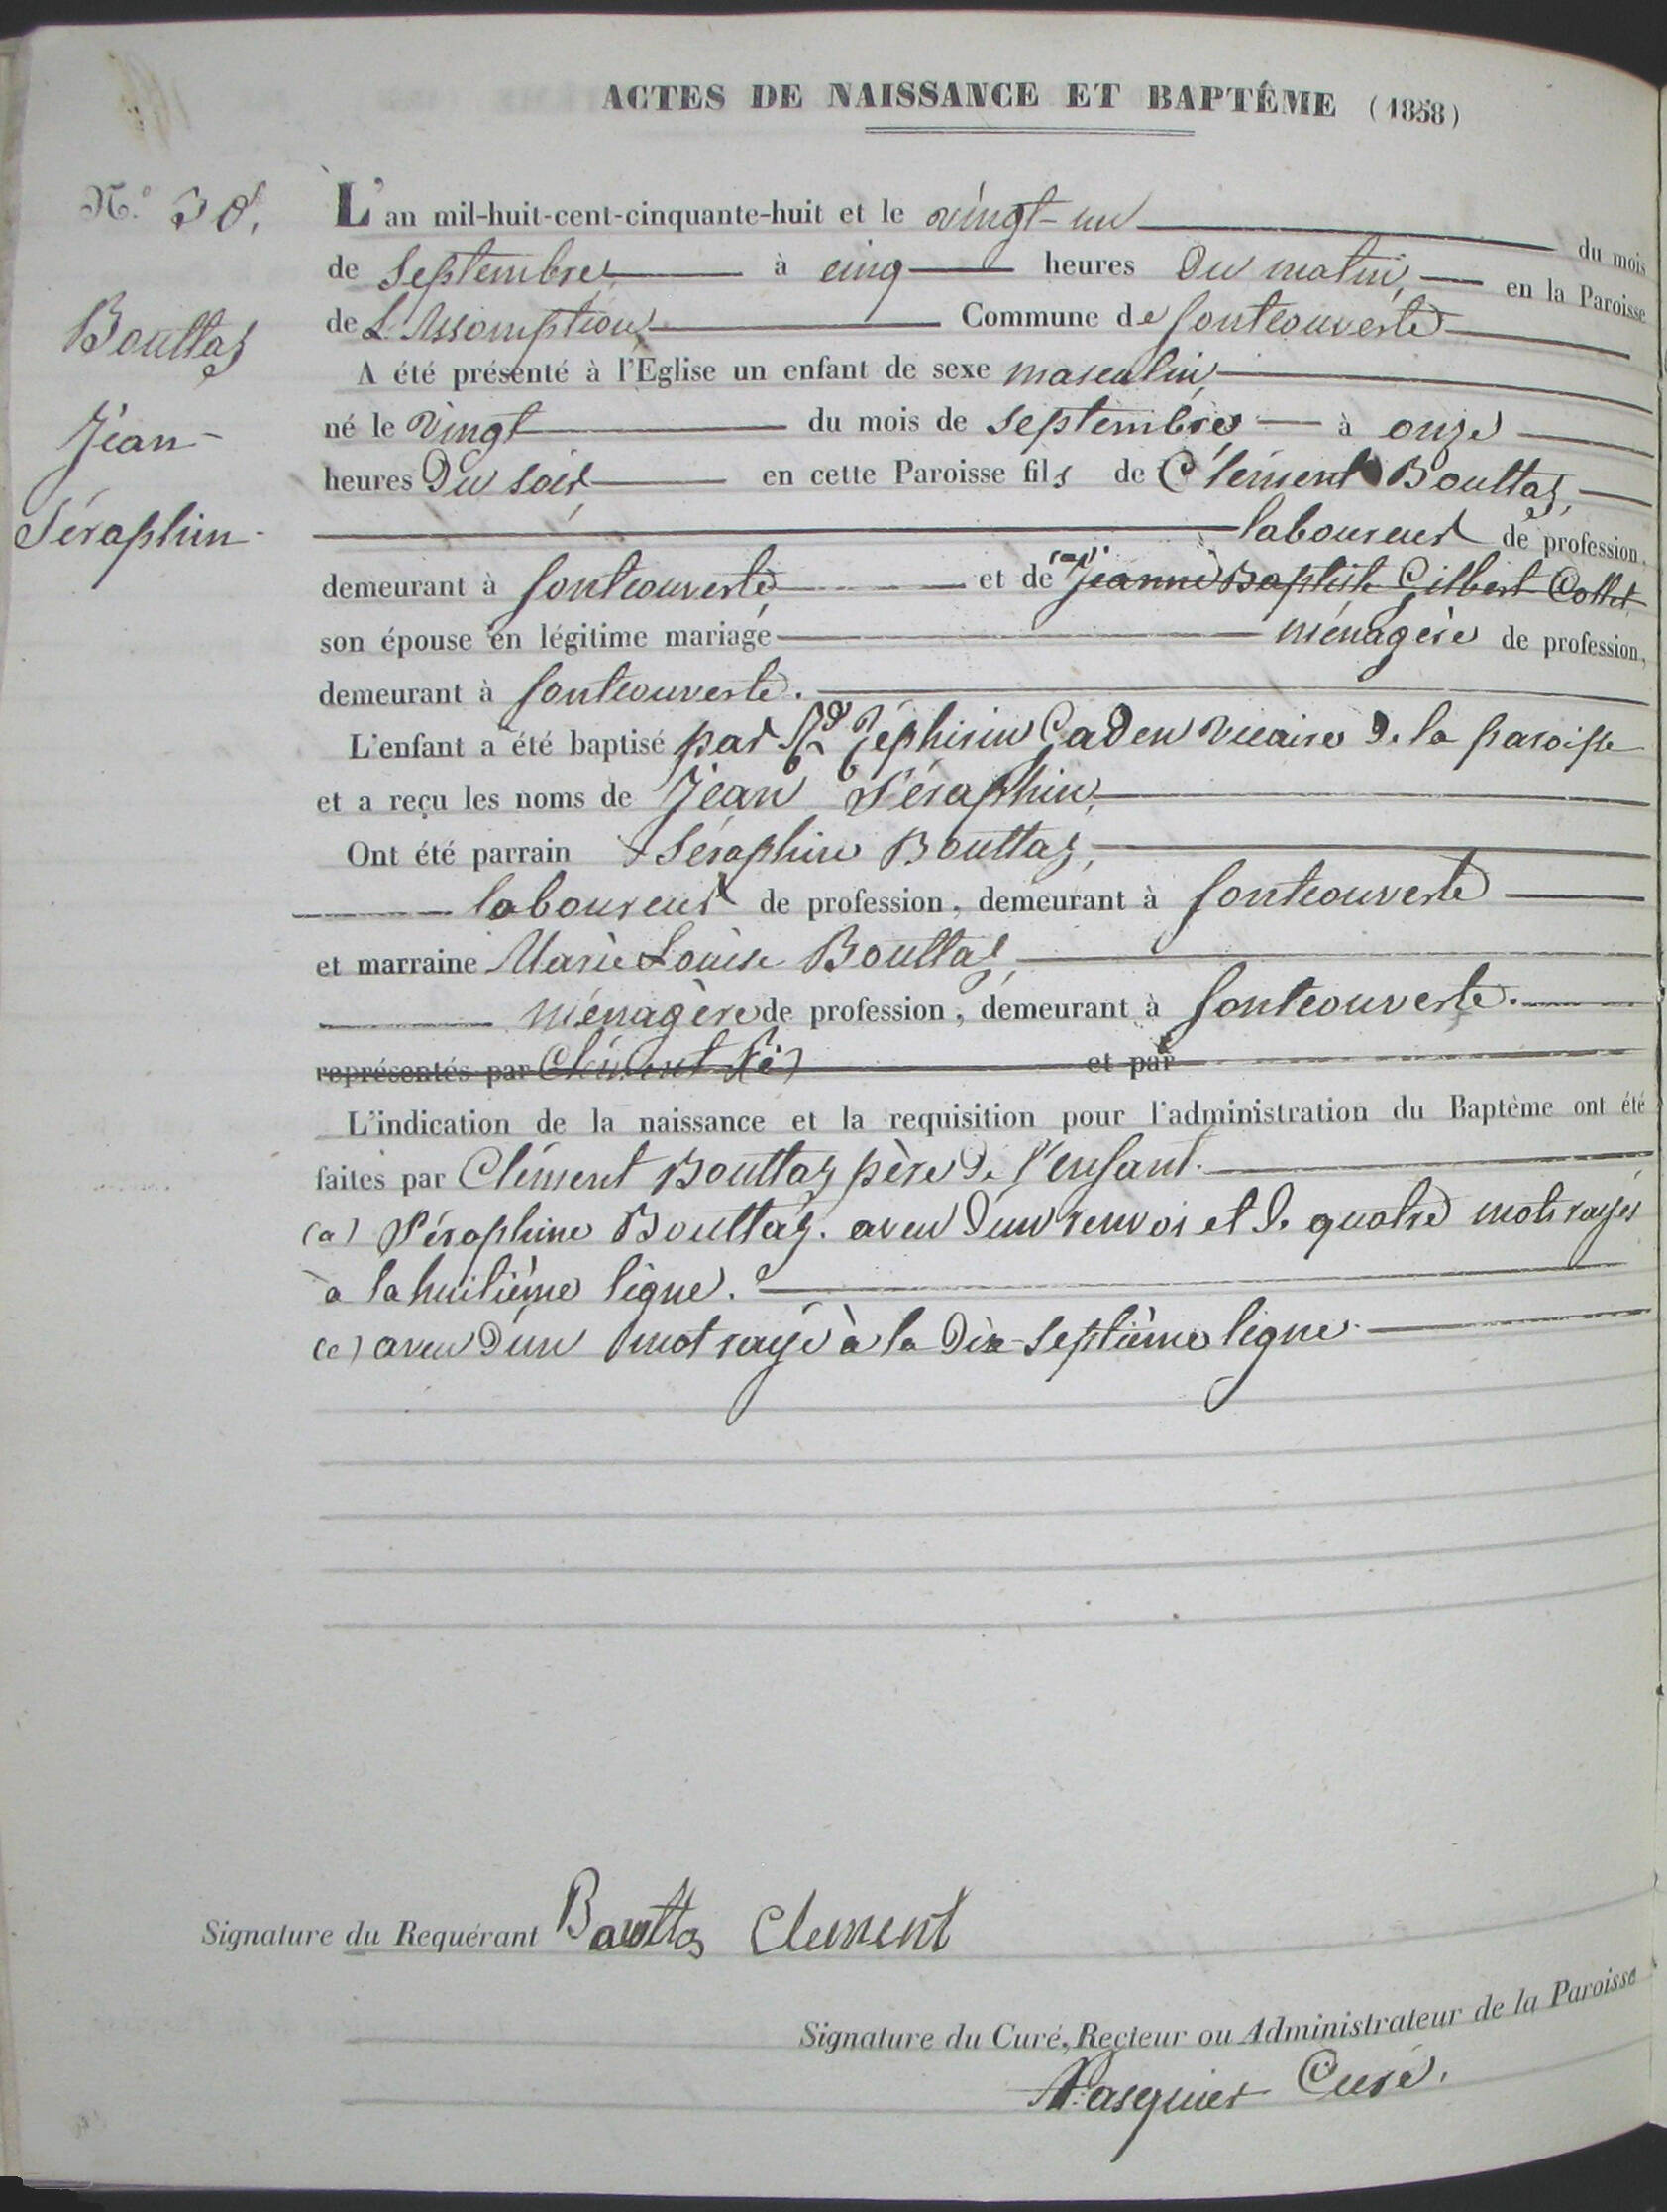 ACTES DE NAISSANCE ET BAPTÊME (1858)
N.° 38.
L'an mil-huit-cent-cinquante-huit et le vingt-un du mois
de Septembre, à cinq heures du matin, en la Paroisse
de L'Assomption, Commune de fontcouverte
Bouttaz
A été présenté à l'Eglise un enfant de sexe masculin,
né le vingt du mois de septembre à onze
Jean
heures du soir en cette Paroisse fils de Clément Bouttaz,
Séraphin
laboureur de profession,
demeurant à fontcouverte, et de (a) Jeanne Baptiste Gilbert Collet
son épouse en légitime mariage ménagère de profession,
demeurant à fontcouverte.
L'enfant a été baptisé par Rd Zéphirin Caden vicaire de la paroisse
et a reçu les noms de Jean Séraphin,
Ont été parrain Séraphin Bouttaz,
laboureur de profession, demeurant à fontcouverte
et marraine Marie Louise Bouttaz,
ménagère de profession, demeurant à fontcouverte.
représentés par Clément et par
L'indication de la naissance et la requisition pour l'administration du Baptème ont été
faites par Clément Bouttaz père de l'enfant.
(a) Séraphine Bouttaz. aveu d'un renvoi et de quatre mots rayés
à la huitième ligne.
(c) aveu d'un mot rayé à la dix-septième ligne.
Signature du Requérant Bouttaz Clement
Signature du Curé, Recteur ou Administrateur de la Paroisse
Pasquier Curé.